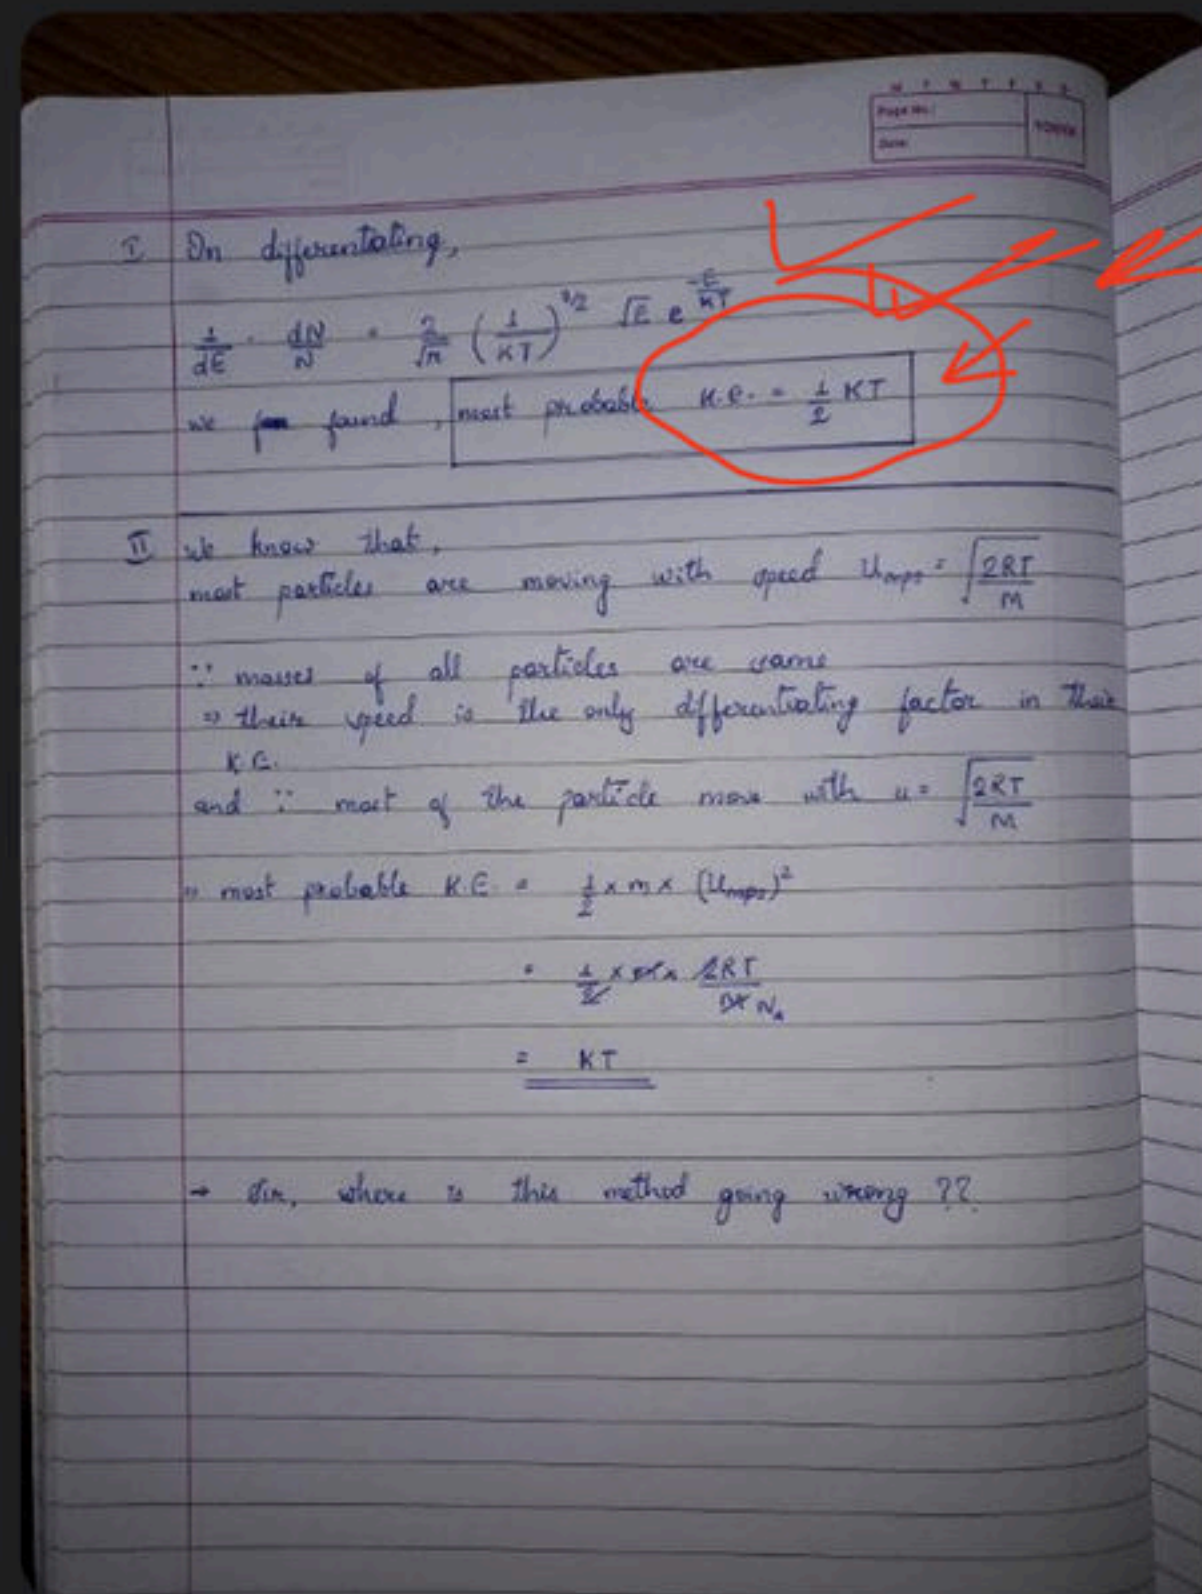 M T W T F S S
Page No.:
Date:
YOUVA
I On differentiating,
1/dE · dN/N = 2/√π (1/KT)^3/2 √E e^-E/KT
we found, most probable K.E. = 1/2 KT
II We know that,
most particles are moving with speed Umps = √2RT/M
∵ masses of all particles are same
⇒ their speed is the only differentiating factor in their
K.E.
and ∵ most of the particle move with u = √2RT/M
⇒ most probable K.E. = 1/2 × m × (Umps)²
= 1/2 × m × 2RT/M NA
= KT
→ Sir, where is this method going wrong ??